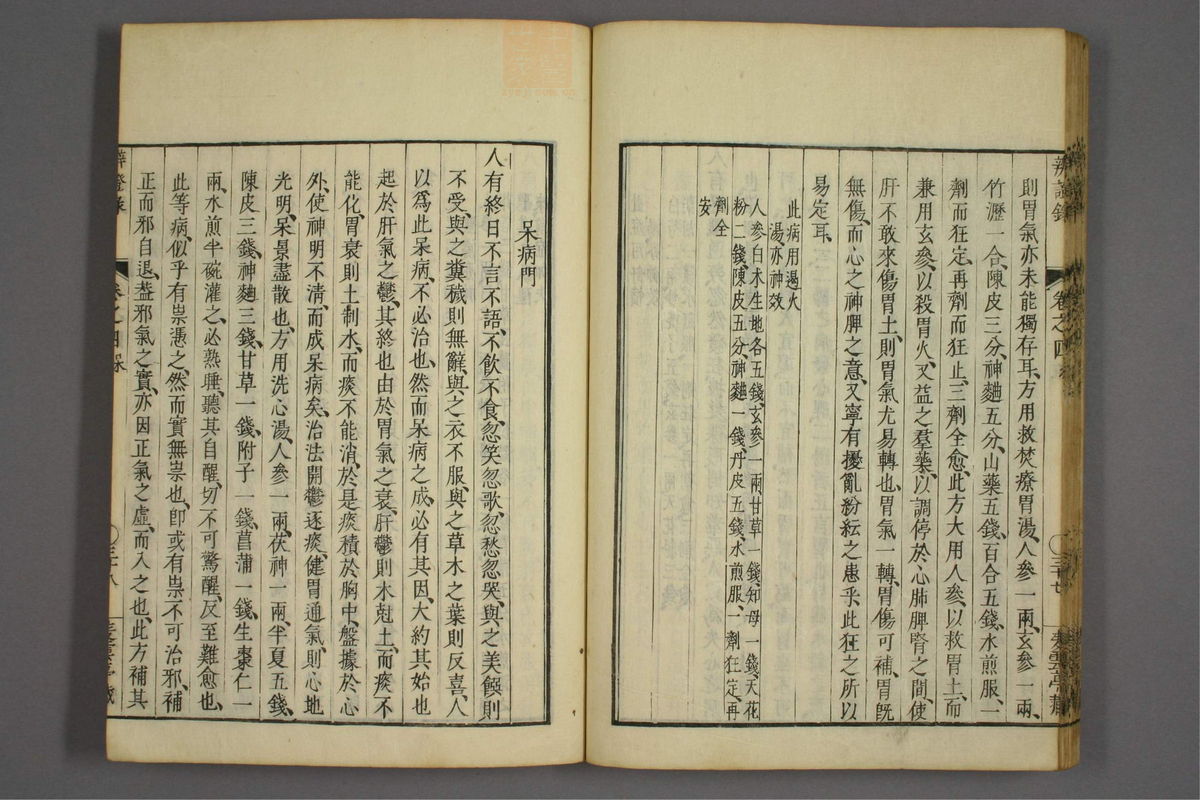 則胃氣亦未能獨存耳、方用救焚療胃湯、人參一兩、玄參一兩、
竹瀝一合、陳皮三分、神麯五分、山藥五錢、百合五錢、水煎服、一
劑而狂定、再劑而狂止、三劑全愈、此方大用人參、以救胃土、而
兼用玄參、以殺胃火、又益之羣藥、以調停於心肺脾腎之間、使
肝不敢來傷胃土、則胃氣尤易轉也、胃氣一轉、胃傷可補、胃旣
無傷、而心之神、脾之意、又寧有擾亂紛紜之患乎、此狂之所以
易定耳、
此病用遏火
湯亦神效
人參白朮生地各五錢、玄參一兩、甘草一錢、知母一錢、天花
粉二錢、陳皮五分、神麯一錢、丹皮五錢、水煎服、一劑狂定、再
劑全
安
辨證錄
卷之四
三十七
呆病門
人有終日不言不語、不飲不食、忽笑忽歌、忽愁忽哭、與之美饌則
不受、與之糞穢則無辭、與之衣不服、與之草木之葉則反喜、人
以爲此呆病、不必治也、然而呆病之成、必有其因、大約其始也
起於肝氣之鬱、其終也由於胃氣之衰、肝鬱則木尅土、而痰不
能化、胃衰則土制水、而痰不能消、於是痰積於胸中、盤據於心
外、使神明不清、而成呆病矣、治法開鬱逐痰、健胃通氣、則心地
光明、呆景盡散也、方用洗心湯、人參一兩、茯神一兩、半夏五錢、
陳皮三錢、神麯三錢、甘草一錢、附子一錢、菖蒲一錢、生棗仁一
兩、水煎半碗灌之、必熟睡、聽其自醒、切不可驚醒、反至難愈也、
此等病、似乎有祟憑之、然而實無祟也、卽或有祟、不可治邪、補
正而邪自退、蓋邪氣之實、亦因正氣之虛、而入之也、此方補其
辨證錄
卷之四
三十八